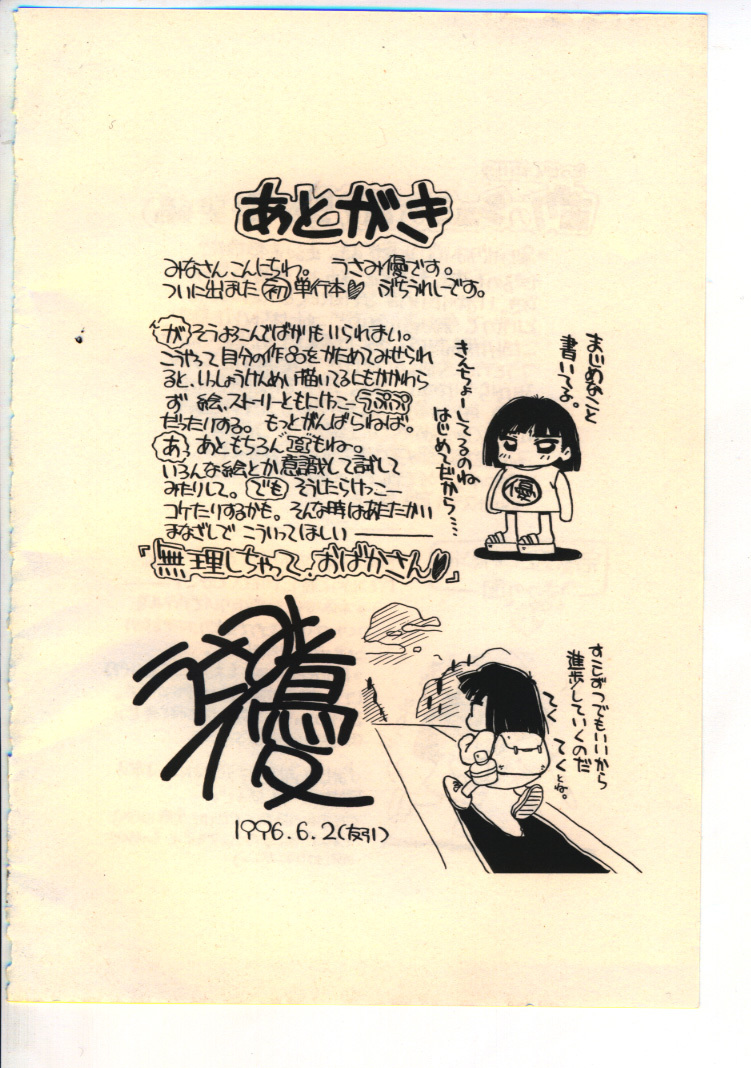 あとがき
みなさんこんにちわ。 うさみ優です。
ついに出ました初単行本♡ ぷちうれしーです。
がそうよろこんでばかりもいられまい。
こうやって自分の作品をかためてみせられ
ると、いっしょうけんめい描いてるにもかかわら
ず 絵、ストーリーともにけっこーうぷぷ
だったりする。もっとがんばらねば。
あ、あともちろん頂もね。
いろんな絵とか意識して試して
みたりして。でもそうしたらけっこー
コケたりするかも。そんな時はあたたかい
まなざしで こういってほしい ―――
『無理しちゃって、おばかさん♡』
まじめなこと
書いてるよ。
きんちょーしてるのね
はじめてだから……
優
うさみ優
1996.6.2(友引)
すこしずつでもいいから
進歩していくのだ
てく
てくとす。